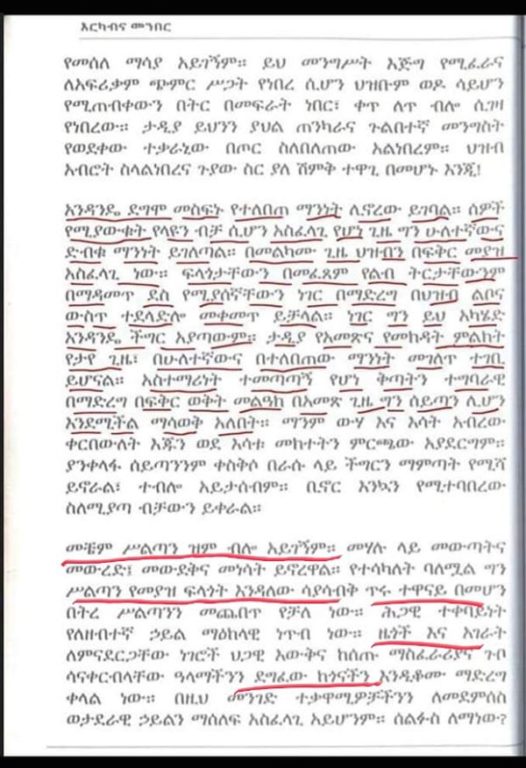 እርካብና መንበር
የመሰለ ማሳያ አይገኝም። ይህ መንግሥት እጅግ የሚፈራና
ለአፍሪቃም ጭምር ሥጋት የነበረ ሲሆን ህዝቡም ወዶ ሳይሆን
የሚጠብቀውን በትር በመፍራት ነበር፣ ቀጥ ለጥ ብሎ ሲገዛ
የነበረው። ታዲያ ይህንን ያህል ጠንካራና ጉልበተኛ መንግስት
የወደቀው ተቃራኒው በጦር ስለበለጠው አልነበረም። ህዝብ
አብሮት ስላልነበረና ጉያው ስር ያለ ሽምቅ ተዋጊ በመሆኑ እንጂ!
አንዳንዴ ደግሞ መስፍኑ የተለበጠ ማንነት ሊኖረው ይገባል። ሰዎች
የሚያውቁት የላዩን ብቻ ሲሆን አስፈላጊ የሆነ ጊዜ ግን ሁለተኛውና
ድብቁ ማንነት ይገለጣል። በመልካሙ ጊዜ ህዝብን በፍቅር መያዝ
አስፈላጊ ነው። ፍላጎታቸውን በመፈጸም የልብ ትርታቸውንም
በማዳመጥ ደስ የሚያሰኛቸውን ነገር በማድረግ በህዝብ ልቦና
ውስጥ ተደላድሎ መቀመጥ ይቻላል። ነገር ግን ይህ አካሄድ
አንዳንዴ ችግር አያጣውም። ታዲያ የአመጽና የመከዳት ምልክት
የታየ ጊዜ፣ በሁለተኛውና በተለበጠው ማንነት መገለጥ ተገቢ
ይሆናል። አስተማሪነት ተመጣጣኝ የሆነ ቅጣትን ተግባራዊ
በማድረግ በፍቅር ወቅት መልዓክ በአመጽ ጊዜ ግን ሰይጣን ሊሆን
እንደሚችል ማሳወቅ አለበት። ማንም ውሃ እና እሳት አብረው
ቀርበውለት እጁን ወደ እሳቱ መከተትን ምርጫው አያደርግም።
ያንቀላፋ ሰይጣንንም ቀስቅሶ በራሱ ላይ ችግርን ማምጣት የሚሻ
ይኖራል፣ ተብሎ አይታሰብም። ቢኖር እንኳን የሚተባበረው
ስለሚያጣ ብቻውን ይቀራል።
መቼም ሥልጣን ዝም ብሎ አይገኝም። መሃሉ ላይ መውጣትና
መውረድ፤ መውደቅና መነሳት ይኖረዋል። የተሳካለት ባለሟል ግን
ሥልጣን የመያዝ ፍላጎት እንዳለው ሳያሳብቅ ጥሩ ተዋናይ በመሆን
በትረ ሥልጣንን መጨበጥ የቻለ ነው። ሕጋዊ ተቀባይነት
የለዘብተኛ ኃይል ማዕከላዊ ነጥብ ነው። ዜጎች እና አገራት
ለምናደርጋቸው ነገሮች ህጋዊ እውቅና ከሰጡ ማስፈራሪያና ጉቦ
ሳናቀርብላቸው ዓላማችንን ደግፈው ከጎናችን እንዲቆሙ ማድረግ
ቀላል ነው። በዚህ መንገድ ተቃዋሚዎቻችንን ለመደምሰስ
ወታደራዊ ኃይልን ማሰለፍ አስፈላጊ አይሆንም። ሰልፉስ ለማነው?